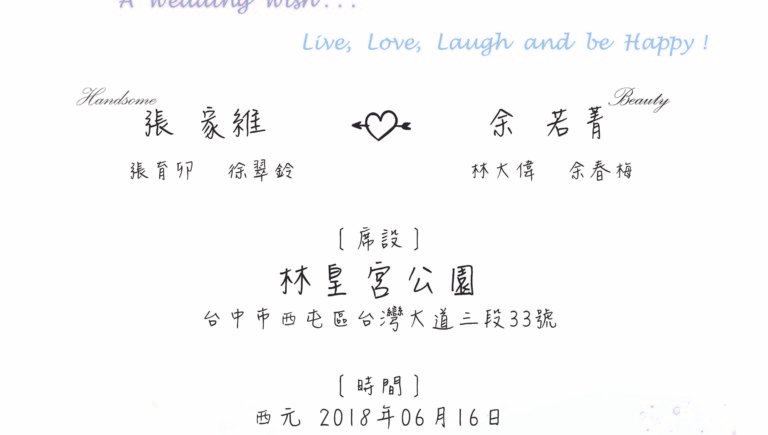 A Wedding Wish...
Live, Love, Laugh and be Happy!
Handsome Beauty
張 家維 余 若菁
張育卯 徐翠鈴 林大偉 余春梅
[席設]
林皇宮公園
台中市西屯區台灣大道三段33號
[時間]
西元 2018年06月16日